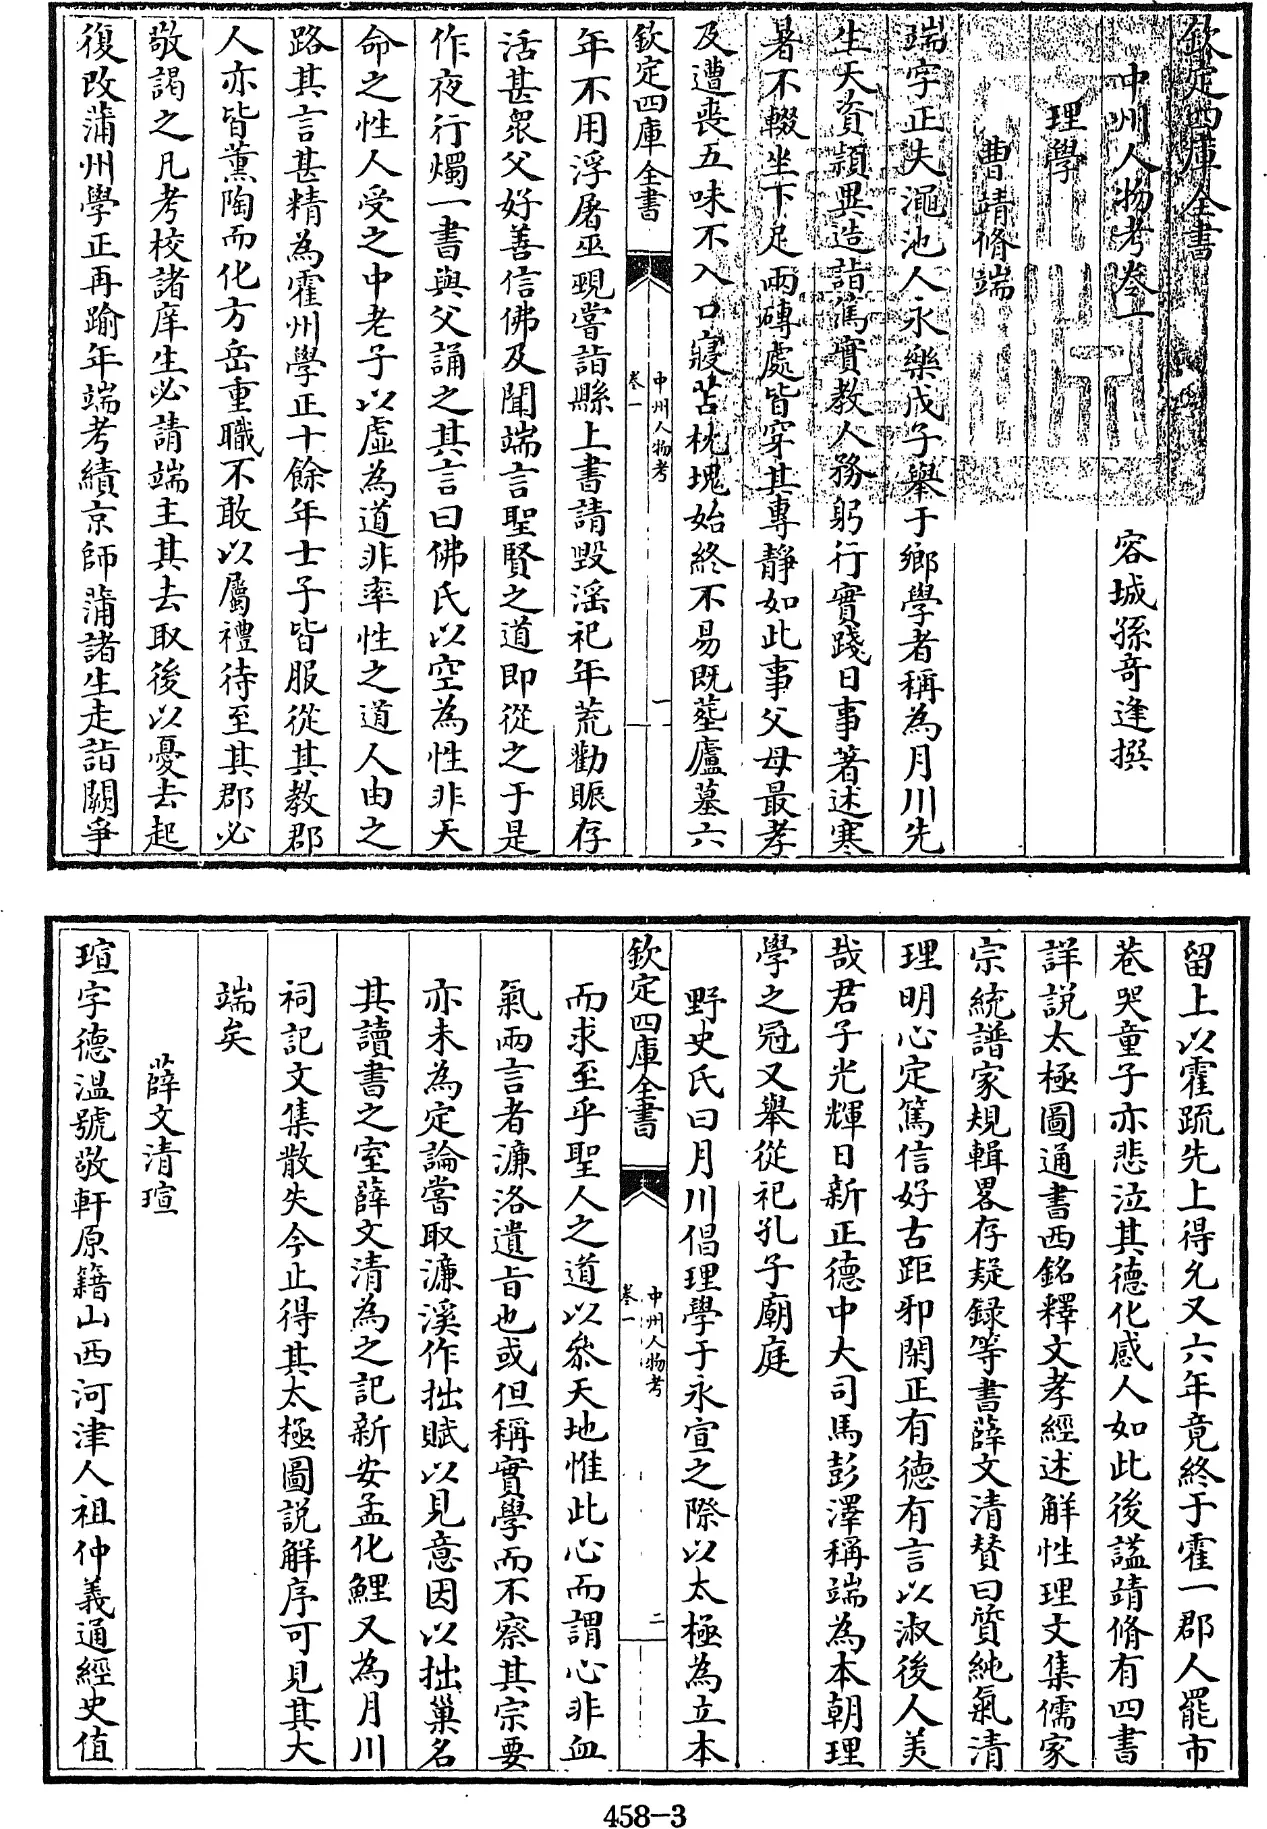 欽定四庫全書
中州人物考卷一
容城孫奇逢撰
理學
曹靖脩端
端字正夫澠池人永樂戊子舉于鄉學者稱為月川先
生天資穎異造詣篤實教人務躬行實踐日事著述寒
暑不輟坐下足兩磚處皆穿其專靜如此事父母最孝
及遭喪五味不入口寢苫枕塊始終不易既塟廬墓六
欽定四庫全書
中州人物考
卷一
一
年不用浮屠巫覡嘗詣縣上書請毀滛祀年荒勸賑存
活甚衆父好善信佛及聞端言聖賢之道即從之于是
作夜行燭一書與父誦之其言曰佛氏以空為性非天
命之性人受之中老子以虛為道非率性之道人由之
路其言甚精為霍州學正十餘年士子皆服從其教郡
人亦皆薰陶而化方岳重職不敢以屬禮待至其郡必
敬謁之凡考校諸庠生必請端主其去取後以憂去起
復改蒲州學正再踰年端考績京師蒲諸生走詣闕爭
留上以霍疏先上得允又六年竟終于霍一郡人罷市
巷哭童子亦悲泣其德化感人如此後諡靖脩有四書
詳說太極圖通書西銘釋文孝經述解性理文集儒家
宗統譜家規輯畧存疑録等書薛文清贊曰質純氣清
理明心定篤信好古距邪閑正有德有言以淑後人美
哉君子光輝日新正德中大司馬彭澤稱端為本朝理
學之冠又舉從祀孔子廟庭
野史氏曰月川倡理學于永宣之際以太極為立本
欽定四庫全書
中州人物考
卷一
二
而求至乎聖人之道以叅天地惟此心而謂心非血
氣兩言者濂洛遺旨也或但稱實學而不察其宗要
亦未為定論嘗取濂溪作拙賦以見意因以拙巢名
其讀書之室薛文清為之記新安孟化鯉又為月川
祠記文集散失今止得其太極圖説解序可見其大
端矣
薛文清瑄
瑄字德溫號敬軒原籍山西河津人祖仲義通經史值
458-3